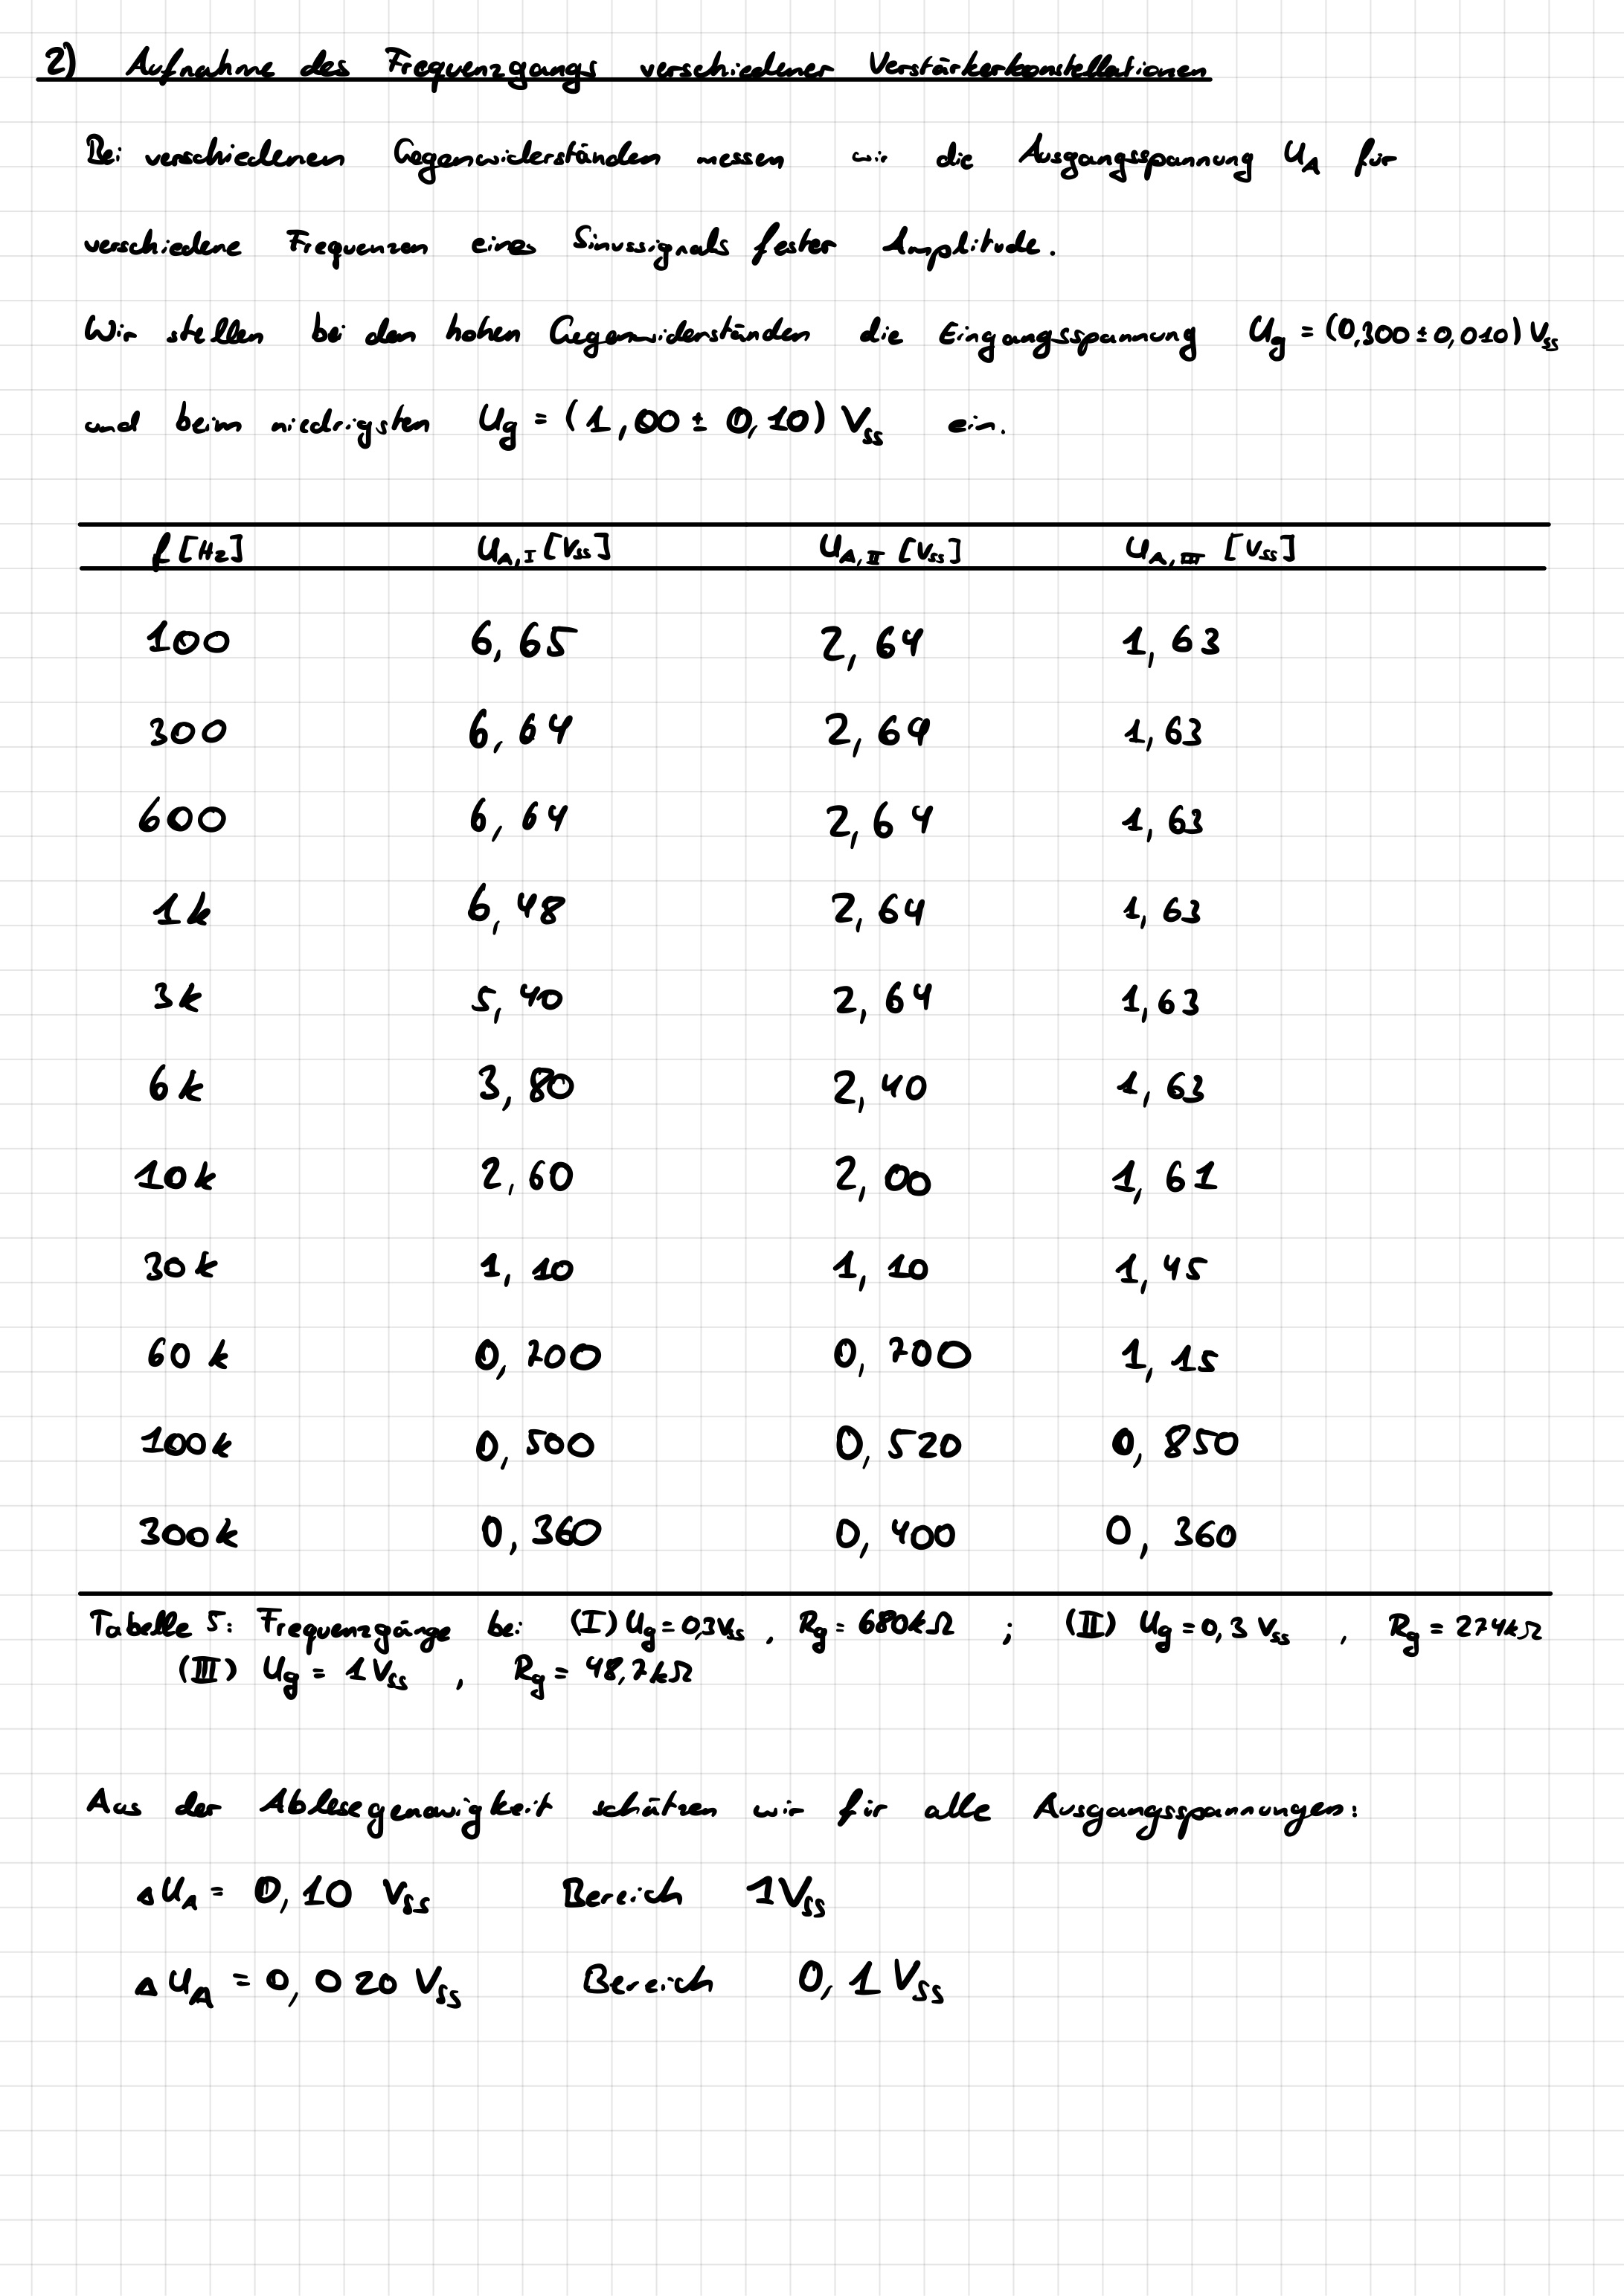 2) Aufnahme des Frequenzgangs verschiedener Verstärkerkonstellationen
Bei verschiedenen Gegenwiderständen messen wir die Ausgangsspannung U_A für
verschiedene Frequenzen eines Sinussignals fester Amplitude.
Wir stellen bei den hohen Gegenwiderständen die Eingangsspannung U_g = (0,300 ± 0,010) V_ss
und beim niedrigsten U_g = (1,00 ± 0,10) V_ss ein.
f [Hz] U_A,I [V_ss] U_A,II [V_ss] U_A,III [V_ss]
100 6,65 2,64 1,63
300 6,64 2,64 1,63
600 6,64 2,64 1,63
1k 6,48 2,64 1,63
3k 5,40 2,64 1,63
6k 3,80 2,40 1,63
10k 2,60 2,00 1,61
30k 1,10 1,10 1,45
60k 0,700 0,700 1,15
100k 0,500 0,520 0,850
300k 0,360 0,400 0,360
Tabelle 5: Frequenzgänge bei: (I) U_g = 0,3 V_ss , R_g = 680kΩ ; (II) U_g = 0,3 V_ss , R_g = 274kΩ
(III) U_g = 1 V_ss , R_g = 48,7kΩ
Aus der Ablesegenauigkeit schätzen wir für alle Ausgangsspannungen:
ΔU_A = 0,10 V_ss Bereich 1V_ss
ΔU_A = 0,020 V_ss Bereich 0,1 V_ss